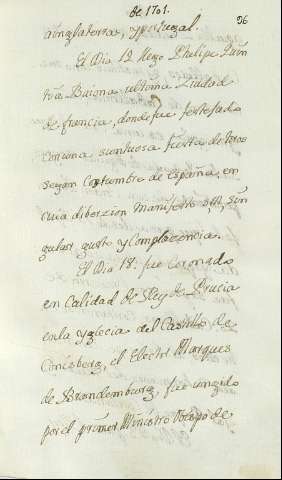 de 1701.
36
aÿnglaterra, yportugal.
El Dia 13. llego Phelipe Quin
to a Baiona ultima Ciudad
de francia, donde fue festejado
con una suntuosa fiesta de toros
segun Costumbre de España, en
cuia diberzion Manifesto S.M. sin
gular gusto y Complacencia.
El Dia 18. fue Coronado
en Calidad de Rey de Prucia
en la yglecia del Castillo de
Conisberg, el Elector Marques
de Brandemburg, fue ungido
por el primer Ministro Obispo de